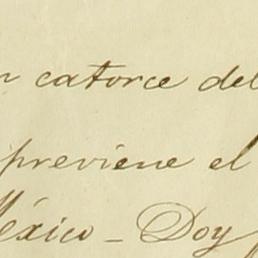 n catorce del
previene el
México - Doy